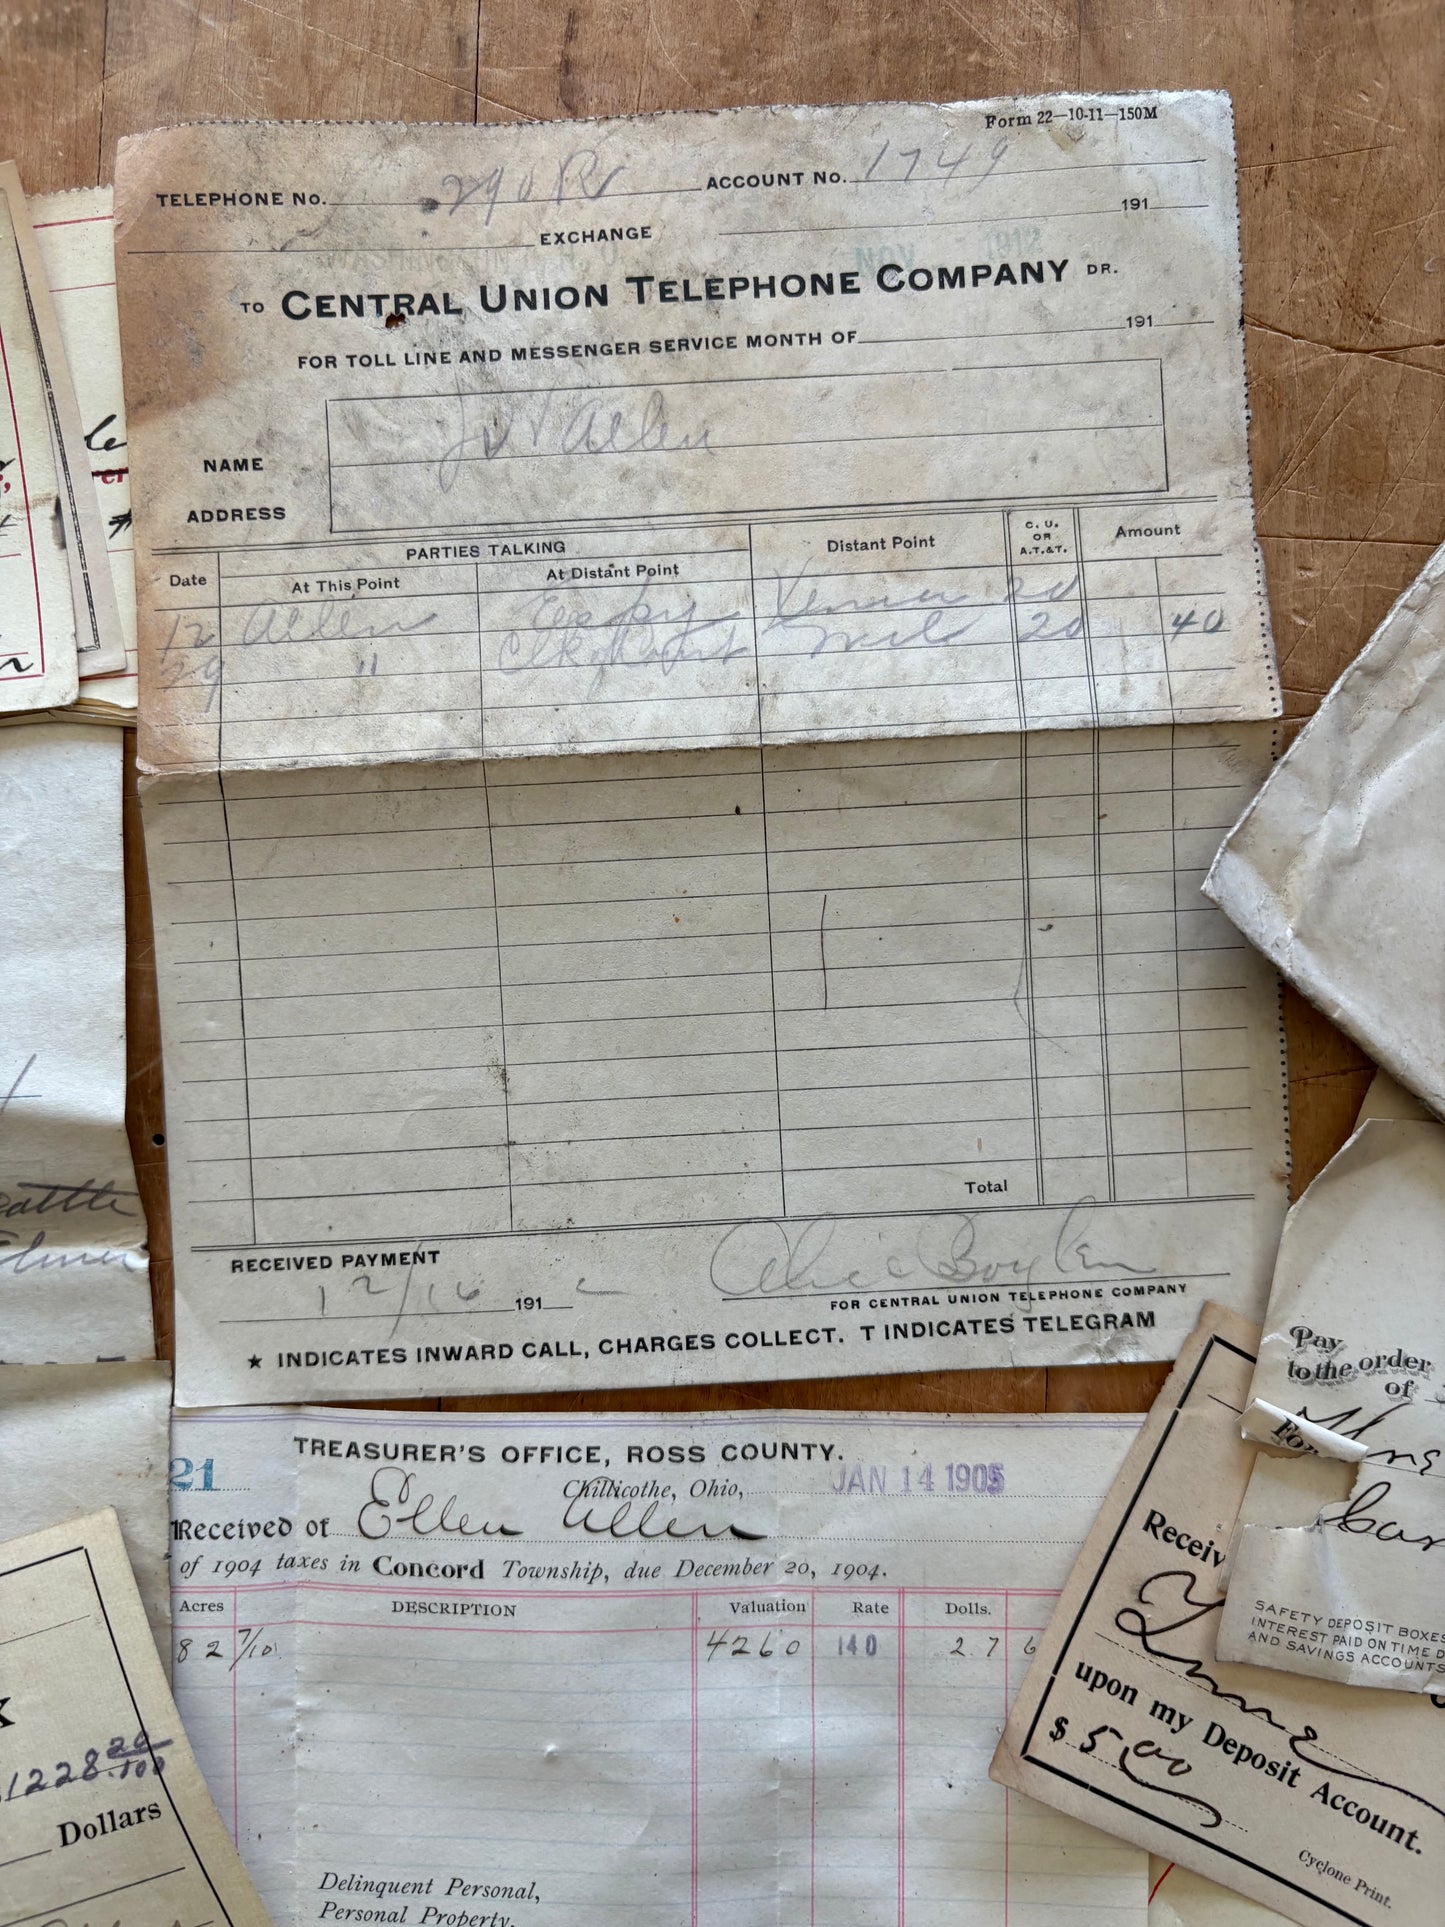 Form 22—10-11—150M
TELEPHONE No. 290 R ACCOUNT No. 1749
191
EXCHANGE
NOV 1912
TO CENTRAL UNION TELEPHONE COMPANY DR.
FOR TOLL LINE AND MESSENGER SERVICE MONTH OF 191
NAME Allen
ADDRESS
PARTIES TALKING Distant Point C. U. OR A.T.&T. Amount
Date At This Point At Distant Point
12 Allen Xenia 20
29 " 20 40
Total
RECEIVED PAYMENT
12/16 191 2 Alice
FOR CENTRAL UNION TELEPHONE COMPANY
★ INDICATES INWARD CALL, CHARGES COLLECT. T INDICATES TELEGRAM
TREASURER'S OFFICE, ROSS COUNTY.
21 Chillicothe, Ohio, JAN 14 1905
Received of Ellen Allen
of 1904 taxes in Concord Township, due December 20, 1904.
Acres DESCRIPTION Valuation Rate Dolls.
82 7/10 4260 140 27 6
Delinquent Personal,
Personal Property.
1228.20/100
Dollars
Pay
to the order
of
For
SAFETY DEPOSIT BOXES
INTEREST PAID ON TIME D
AND SAVINGS ACCOUNTS
Receiv
upon my Deposit Account.
$ 5.00
Cyclone Print.